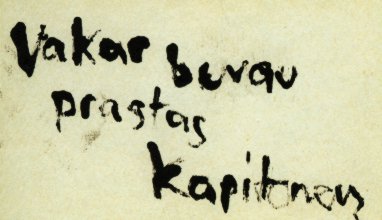 Vakar buvau
prastas
kapitonas